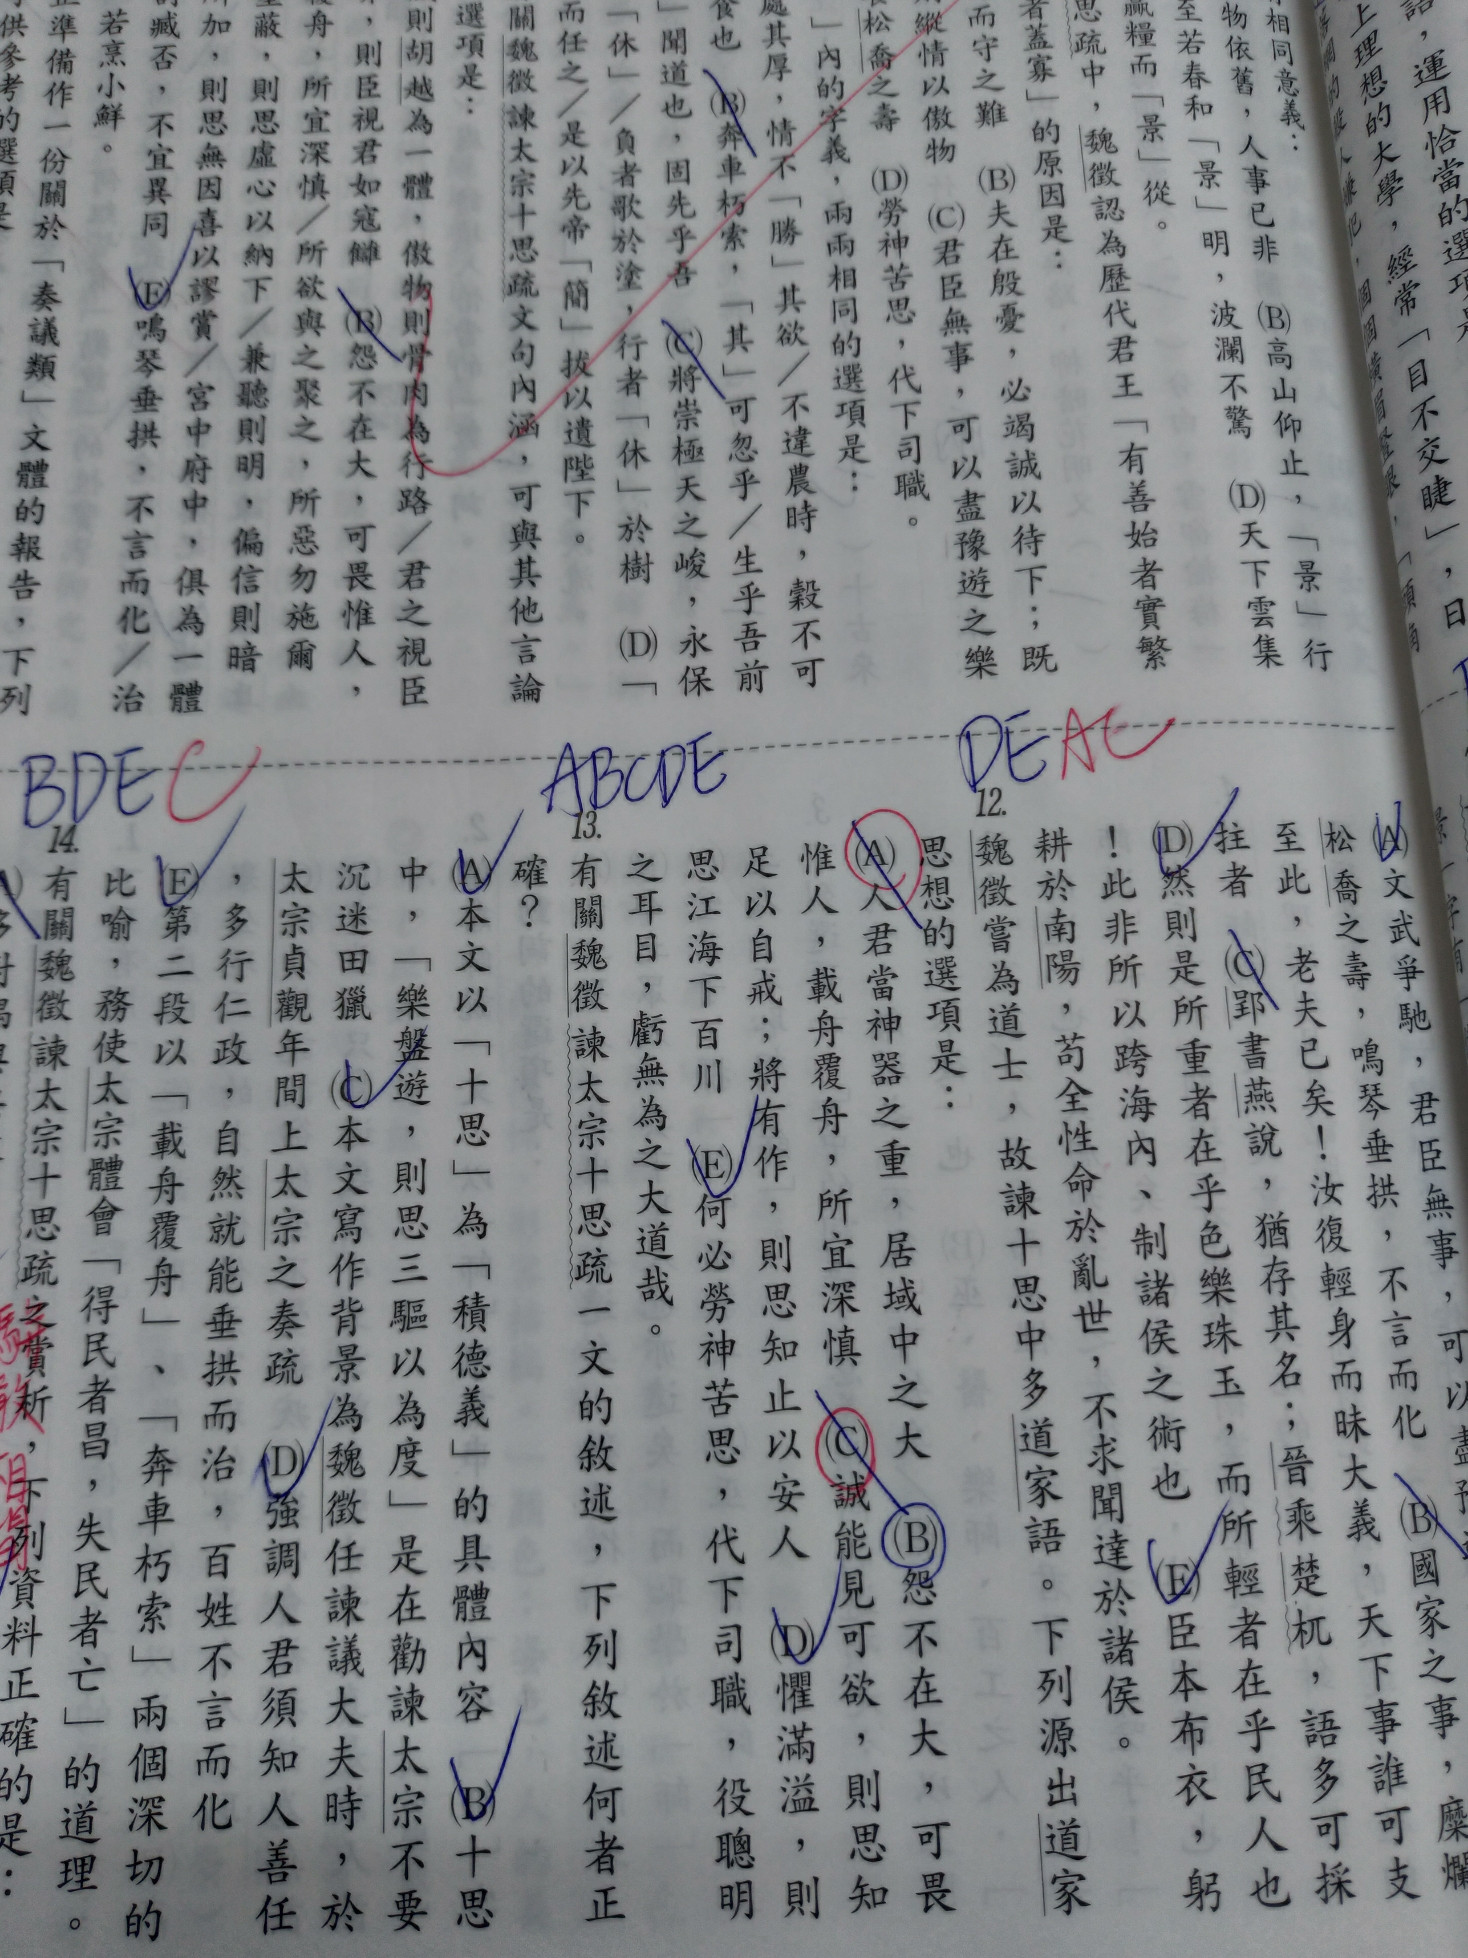 語，運用恰當的選項是
上理想的大學，經常「目不交睫」，日
相同意義：
物依舊，人事已非　(B)高山仰止，「景」行
至若春和「景」明，波瀾不驚　(D)天下雲集
贏糧而「景」從。
思疏中，魏徵認為歷代君王「有善始者實繁
者蓋寡」的原因是：
而守之難　(B)夫在殷憂，必竭誠以待下；既
縱情以傲物　(C)君臣無事，可以盡豫遊之樂
松喬之壽　(D)勞神苦思，代下司職。
」內的字義，兩兩相同的選項是：
處其厚，情不「勝」其欲／不違農時，穀不可
食也　(B)奔車朽索，「其」可忽乎／生乎吾前
」聞道也，固先乎吾　(C)將崇極天之峻，永保
「休」／負者歌於塗，行者「休」於樹　(D)「
而任之／是以先帝「簡」拔以遺陛下。
關魏徵諫太宗十思疏文句內涵，可與其他言論
選項是：
則胡越為一體，傲物則骨肉為行路／君之視臣
，則臣視君如寇讎　(B)怨不在大，可畏惟人，
舟，所宜深慎／所欲與之聚之，所惡勿施爾
蔽，則思虛心以納下／兼聽則明，偏信則暗
加，則思無因喜以謬賞／宮中府中，俱為一體
臧否，不宜異同　(E)鳴琴垂拱，不言而化／治
若烹小鮮。
準備作一份關於「奏議類」文體的報告，下列
供參考的選項是
DE AC
ABCDE
BDE C
(A)文武爭馳，君臣無事，可以盡豫遊
松喬之壽，鳴琴垂拱，不言而化　(B)國家之事，糜爛
至此，老夫已矣！汝復輕身而昧大義，天下事誰可支
拄者　(C)郢書燕說，猶存其名；晉乘楚杌，語多可採
(D)然則是所重者在乎色樂珠玉，而所輕者在乎民人也
！此非所以跨海內、制諸侯之術也　(E)臣本布衣，躬
耕於南陽，苟全性命於亂世，不求聞達於諸侯。
12.
魏徵嘗為道士，故諫十思中多道家語。下列源出道家
思想的選項是：
(A)人君當神器之重，居域中之大　(B)怨不在大，可畏
惟人，載舟覆舟，所宜深慎　(C)誠能見可欲，則思知
足以自戒；將有作，則思知止以安人　(D)懼滿溢，則
思江海下百川　(E)何必勞神苦思，代下司職，役聰明
之耳目，虧無為之大道哉。
13.
有關魏徵諫太宗十思疏一文的敘述，下列敘述何者正
確？
(A)本文以「十思」為「積德義」的具體內容　(B)十思
中，「樂盤遊，則思三驅以為度」是在勸諫太宗不要
沉迷田獵　(C)本文寫作背景為魏徵任諫議大夫時，於
太宗貞觀年間上太宗之奏疏　(D)強調人君須知人善任
，多行仁政，自然就能垂拱而治，百姓不言而化
(E)第二段以「載舟覆舟」、「奔車朽索」兩個深切的
比喻，務使太宗體會「得民者昌，失民者亡」的道理。
14.
有關魏徵諫太宗十思疏之賞析，下列資料正確的是：